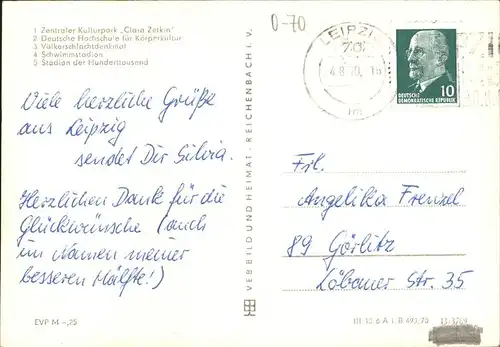 1 Zentraler Kulturpark „Clara Zetkin"
2 Deutsche Hochschule für Körperkultur
3 Völkerschlachtdenkmal
4 Schwimmstadion
5 Stadion der Hunderttausend
0-70
LEIPZIG
701
4.8.70.
DEUTSCHE
DEMOKRATISCHE REPUBLIK
10
Viele herzliche Grüße
aus Leipzig
sendet Dir Silvia.
Herzlichen Dank für die
Glückwünsche (auch
im Namen meiner
besseren Hälfte!)
VEB BILD UND HEIMAT · REICHENBACH i. V.
Frl.
Angelika Frenzel
89 Görlitz
Löbauer Str. 35
EVP M -,25
III 13 6 A 1 B 493/70